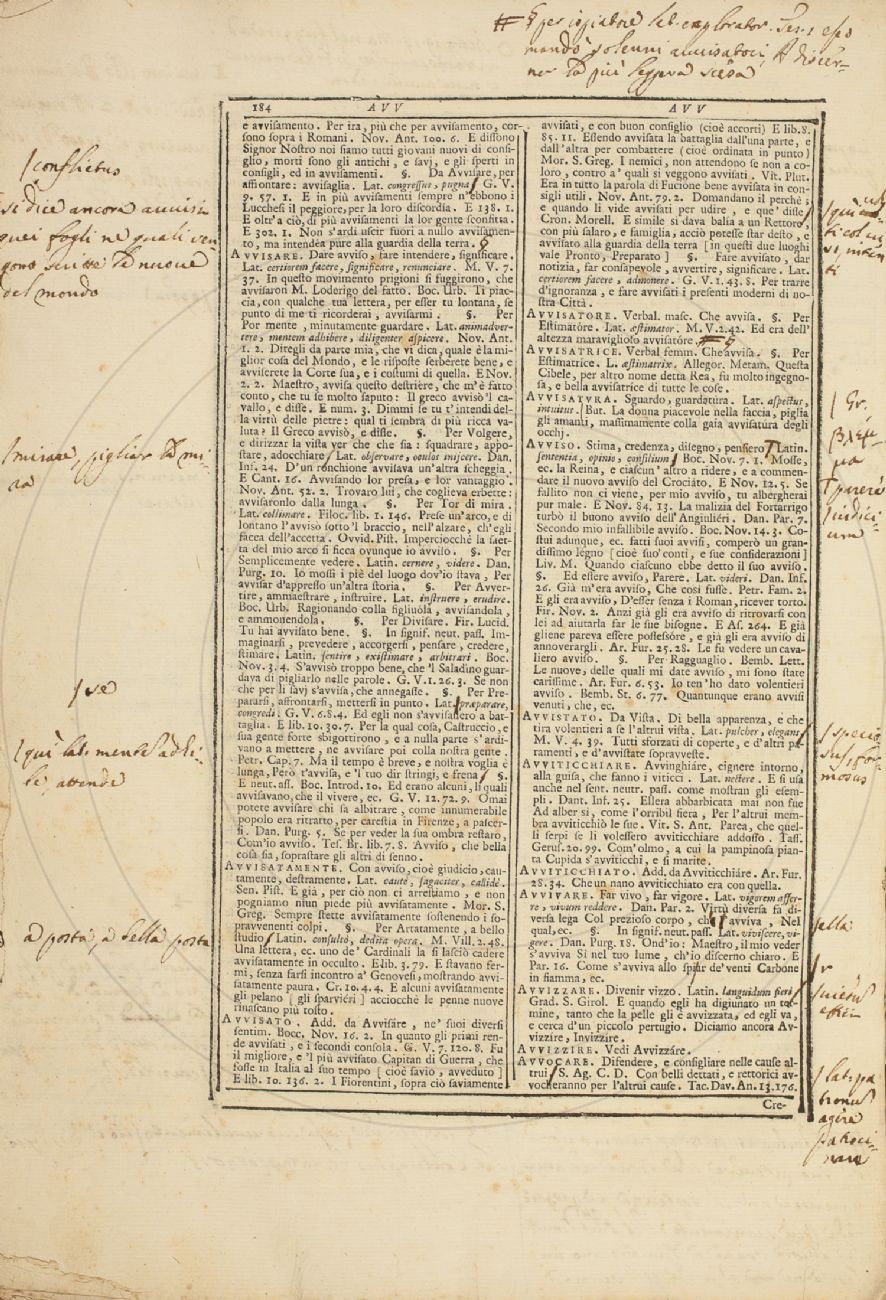 184 AVV AVV
e avvisamento. Per ira, più che per avvisamento, cor-
sono sopra i Romani. Nov. Ant. 100. 6. E dissono
Signor Nostro noi siamo tutti giovani nuovi di consi-
glio, morti sono gli antichi, e savj, e gli sperti in
consigli, ed in avvisamenti. §. Da Avvisare, per
affrontare: avvisaglia. Lat. congressus, pugna G. V.
9. 57. 1. E in più avvisamenti sempre n'ebbono i
Lucchesi il peggiore, per la loro discordia. E 138. 1.
E oltr'a ciò, di più avvisamenti la lor gente sconfitta.
E 302. 1. Non s'ardì uscir fuori a nullo avvisamen-
to, ma intendea pure alla guardia della terra.
AVVISARE. Dare avviso, fare intendere, significare.
Lat. certiorem facere, significare, renunciare. M. V. 7.
37. In questo movimento prigioni si fuggirono, che
avvisaron M. Loderigo del fatto. Boc. Urb. Ti piac-
cia, con qualche tua lettera, per esser tu lontana, se
punto di me ti ricorderai, avvisarmi. §. Per
Por mente, minutamente guardare. Lat. animadver-
tere, mentem adhibere, diligenter aspicere. Nov. Ant.
1. 2. Diregli da parte mia, che vi dica, quale è la mi-
glior cosa del Mondo, e le risposte serberete bene, e
avviserete la Corte sua, e i costumi di quella. E Nov.
2. 2. Maestro, avvisa questo destrière, che m'è fatto
conto, che tu se molto saputo: Il greco avvisò'l ca-
vallo, e disse. E num. 3. Dimmi se tu t'intendi del-
la virtù delle pietre: qual ti sembra di più ricca va-
luta? Il Greco avvisò, e disse. §. Per Volgere,
e dirizzar la vista ver che che sia: squadrare, appo-
stare, adocchiare Lat. observare, oculos injicere. Dan.
Inf. 24. D'un ronchione avvisava un'altra scheggia.
E Cant. 16. Avvisando lor presa, e lor vantaggio.
Nov. Ant. 52. 2. Trovaro lui, che coglieva erbette:
avvisaronlo dalla lunga. §. Per Tor di mira.
Lat. collimare. Filoc. lib. 1. 146. Prese un'arco, e di
lontano l'avvisò sotto'l braccio, nell'alzare, ch'egli
facea dell'accetta. Ovvid. Pist. Imperciocchè la saet-
ta del mio arco si ficca ovunque io avviso. §. Per
Semplicemente vedere. Latin. cernere, videre. Dan.
Purg. 10. Io mossi i piè del luogo dov'io stava, Per
avvisar d'appresso un'altra storia. §. Per Avver-
tire, ammaestrare, instruire. Lat. instruere, erudire.
Boc. Urb. Ragionando colla figliuola, avvisandola,
e ammonendola. §. Per Divisare. Fir. Lucid.
Tu hai avvisato bene. §. In signif. neut. pass. Im-
maginarsi, prevedere, accorgersi, pensare, credere,
stimare. Latin. sentire, existimare, arbitrari. Boc.
Nov. 3. 4. S'avvisò troppo bene, che'l Saladino guar-
dava di pigliarlo nelle parole. G. V. 1. 26. 3. Se non
che per li savj s'avvisa, che annegasse. §. Per Pre-
pararsi, affrontarsi, mettersi in punto. Lat. præparare,
congredi. G. V. 6. 8. 4. Ed egli non s'avvisassero a bat-
taglia. E lib. 10. 30. 7. Per la qual cosa, Castruccio, e
sua gente forte sbigottirono, e a nulla parte s'ardi-
vano a mettere, ne avvisare poi colla nostra gente.
Petr. Cap. 7. Ma il tempo è breve, e nostra voglia è
lunga, Però t'avvisa, e'l tuo dir stringi, e frena §.
E neut. ass. Boc. Introd. 10. Ed erano alcuni, li quali
avvisavano, che il vivere, ec. G. V. 12. 72. 9. Omai
potete avvisare chi sa albitrare, come innumerabile
popolo era ritratto, per carestia in Firenze, a pascer-
si. Dan. Purg. 5. Se per veder la sua ombra restaro,
Com'io avviso. Tes. Br. lib. 7. 8. Avviso, che bella
cosa sia, soprastare gli altri di senno.
AVVISATAMENTE. Con avviso, cioè giudicio, cau-
tamente, destramente. Lat. cautè, sagaciter, callidè.
Sen. Pist. E già, per ciò non ci arrestiamo, e non
pogniamo niun piede più avvisatamente. Mor. S.
Greg. Sempre stette avvisatamente sostenendo i so-
pravvenenti colpi. §. Per Artatamente, a bello
studio Latin. consultò, dedita opera. M. Vill. 2. 48.
Una lettera, ec. uno de' Cardinali la si lasciò cadere
avvisatamente in occulto. E lib. 3. 79. E stavano fer-
mi, senza farsi incontro a' Genovesi, mostrando avvi-
satamente paura. Cr. 10. 4. 4. E alcuni avvisatamente
gli pelano [gli sparviéri] acciocchè le penne nuove
rinascano più tosto.
AVVISATO. Add. da Avvisare, ne' suoi diversi
sentim. Bocc. Nov. 16. 2. In quanto gli primi ren-
de avvisati, e i secondi consola. G. V. 7. 120. 8. Fu
il migliore, e'l più avvisato Capitan di Guerra, che
fosse in Italia al suo tempo [cioè savio, avveduto]
E lib. 10. 136. 2. I Fiorentini, sopra ciò saviamente
avvisati, e con buon consiglio (cioè accorti) E lib. 8.
85. 11. Essendo avvisata la battaglia dall'una parte, e
dall'altra per combattere (cioè ordinata in punto)
Mor. S. Greg. I nemici, non attendono se non a co-
loro, contro a' quali si veggono avvisati. Vit. Plut.
Era in tutto la parola di Fucione bene avvisata in con-
sigli utili. Nov. Ant. 79. 2. Domandano il perchè;
e quando li vide avvisati per udire, e que' disse
Cron. Morell. E simile si dava balia a un Rettore,
con più salaro, e famiglia, acciò potesse star desto, e
avvisato alla guardia della terra [in questi due luoghi
vale Pronto, Preparato] §. Fare avvisato, dar
notizia, far consapevole, avvertire, significare. Lat.
certiorem facere, admonere. G. V. 1. 43. 8. Per trarre
d'ignoranza, e fare avvisati i presenti moderni di no-
stra Città.
AVVISATORE. Verbal. masc. Che avvisa. §. Per
Estimatóre. Lat. æstimator. M. V. 2. 42. Ed era dell'
altezza maraviglioso avvisatóre.
AVVISATRICE. Verbal femm. Che avvisa. §. Per
Estimatrice. L. æstimatrix. Allegor. Metam. Questa
Cibele, per altro nome detta Rea, fu molto ingegno-
sa, e bella avvisatrice di tutte le cose.
AVVISATURA. Sguardo, guardatura. Lat. aspectus,
intuitus. But. La donna piacevole nella faccia, piglia
gli amanti, massimamente colla gaia avvisatura degli
occhj.
AVVISO. Stima, credenza, disegno, pensiero Latin.
sententia, opinio, consilium Boc. Nov. 7. 1. Mosse,
ec. la Reina, e ciascun' altro a ridere, e a commen-
dare il nuovo avviso del Crociáto. E Nov. 12. 5. Se
fallito non ci viene, per mio avviso, tu albergherai
pur male. E Nov. 84. 13. La malizia del Fortarrigo
turbò il buono avviso dell'Angiuliéri. Dan. Par. 7.
Secondo mio infallibile avviso. Boc. Nov. 14. 3. Co-
stui adunque, ec. fatti suoi avvisi, comperò un gran-
dissimo légno [cioè suo' conti, e sue considerazioni]
Liv. M. Quando ciascuno ebbe detto il suo avviso.
§. Ed essere avviso, Parere. Lat. videri. Dan. Inf.
26. Già m'era avviso, Che così fusse. Petr. Fam. 2.
E gli era avviso, D'esser senza i Roman, ricever torto.
Fir. Nov. 2. Anzi già gli era avviso di ritrovarsi con
lei ad aiutarla far le sue bisogne. E As. 264. E già
gliene pareva essere possessóre, e già gli era avviso di
annoverargli. Ar. Fur. 25. 28. Le fu vedere un cava-
liero avviso. §. Per Ragguaglio. Bemb. Lett.
Le nuove, delle quali mi date avviso, mi sono state
carissime. Ar. Fur. 6. 53. Io ten'ho dato volentieri
avviso. Bemb. St. 6. 77. Quantunque erano avvisi
venuti, che, ec.
AVVISTATO. Da Vista. Di bella apparenza, e che
tira volentieri a se l'altrui vista. Lat. pulcher, elegans
M. V. 4. 39. Tutti sforzati di coperte, e d'altri pa-
ramenti, e d'avvistate sopravveste.
AVVITICCHIARE. Avvinghiáre, cignere intorno,
alla guisa, che fanno i viticci. Lat. nectere. E si usa
anche nel sent. neutr. pass. come mostran gli esem-
pli. Dant. Inf. 25. Ellera abbarbicata mai non fue
Ad alber sì, come l'orribil fiera, Per l'altrui mem-
bra avviticchiò le sue. Vit. S. Ant. Parea, che quel-
li serpi se li volessero avviticchiare addosso. Tass.
Gerus. 20. 99. Com'olmo, a cui la pampinosa pian-
ta Cupida s'avviticchi, e si marite.
AVVITICCHIATO. Add. da Avviticchiáre. Ar. Fur.
28. 34. Che un nano avviticchiato era con quella.
AVVIVARE. Far vivo, far vigore. Lat. vigorem affer-
re, vivum reddere. Dan. Par. 2. Virtù diversa fa di-
versa lega Col prezioso corpo, ch'avviva, Nel
qual, ec. §. In signif. neut. pass. Lat. viviscere, vi-
gere. Dan. Purg. 18. Ond'io: Maestro, il mio veder
s'avviva Sì nel tuo lume, ch'io discerno chiaro. E
Par. 16. Come s'avviva allo spirar de'venti Carbóne
in fiamma, ec.
AVVIZZARE. Divenir vizzo. Latin. languidum fieri
Grad. S. Girol. E quando egli ha digiunato un ter-
mine, tanto che la pelle gli è avvizzata, ed egli va,
e cerca d'un piccolo pertugio. Diciamo ancora Av-
vizzire, Invizzire.
AVVIZZIRE. Vedi Avvizzáre.
AVVOCARE. Difendere, e consigliare nelle cause al-
trui S. Ag. C. D. Con belli dettati, e rettorici av-
vocheranno per l'altrui cause. Tac. Dav. An. 13. 176.
Cre-
conflictus
si dice ancora avvisi
quei fogli ne quali ven
gono scritte le nuove
del mondo
mirare, pigliar la mi-
ra
ve
attende
a posta, a bella posta
parere
judici-
um
specio
sus, for-
mosus
lat. pa
tronus
agere
patroci-
nare